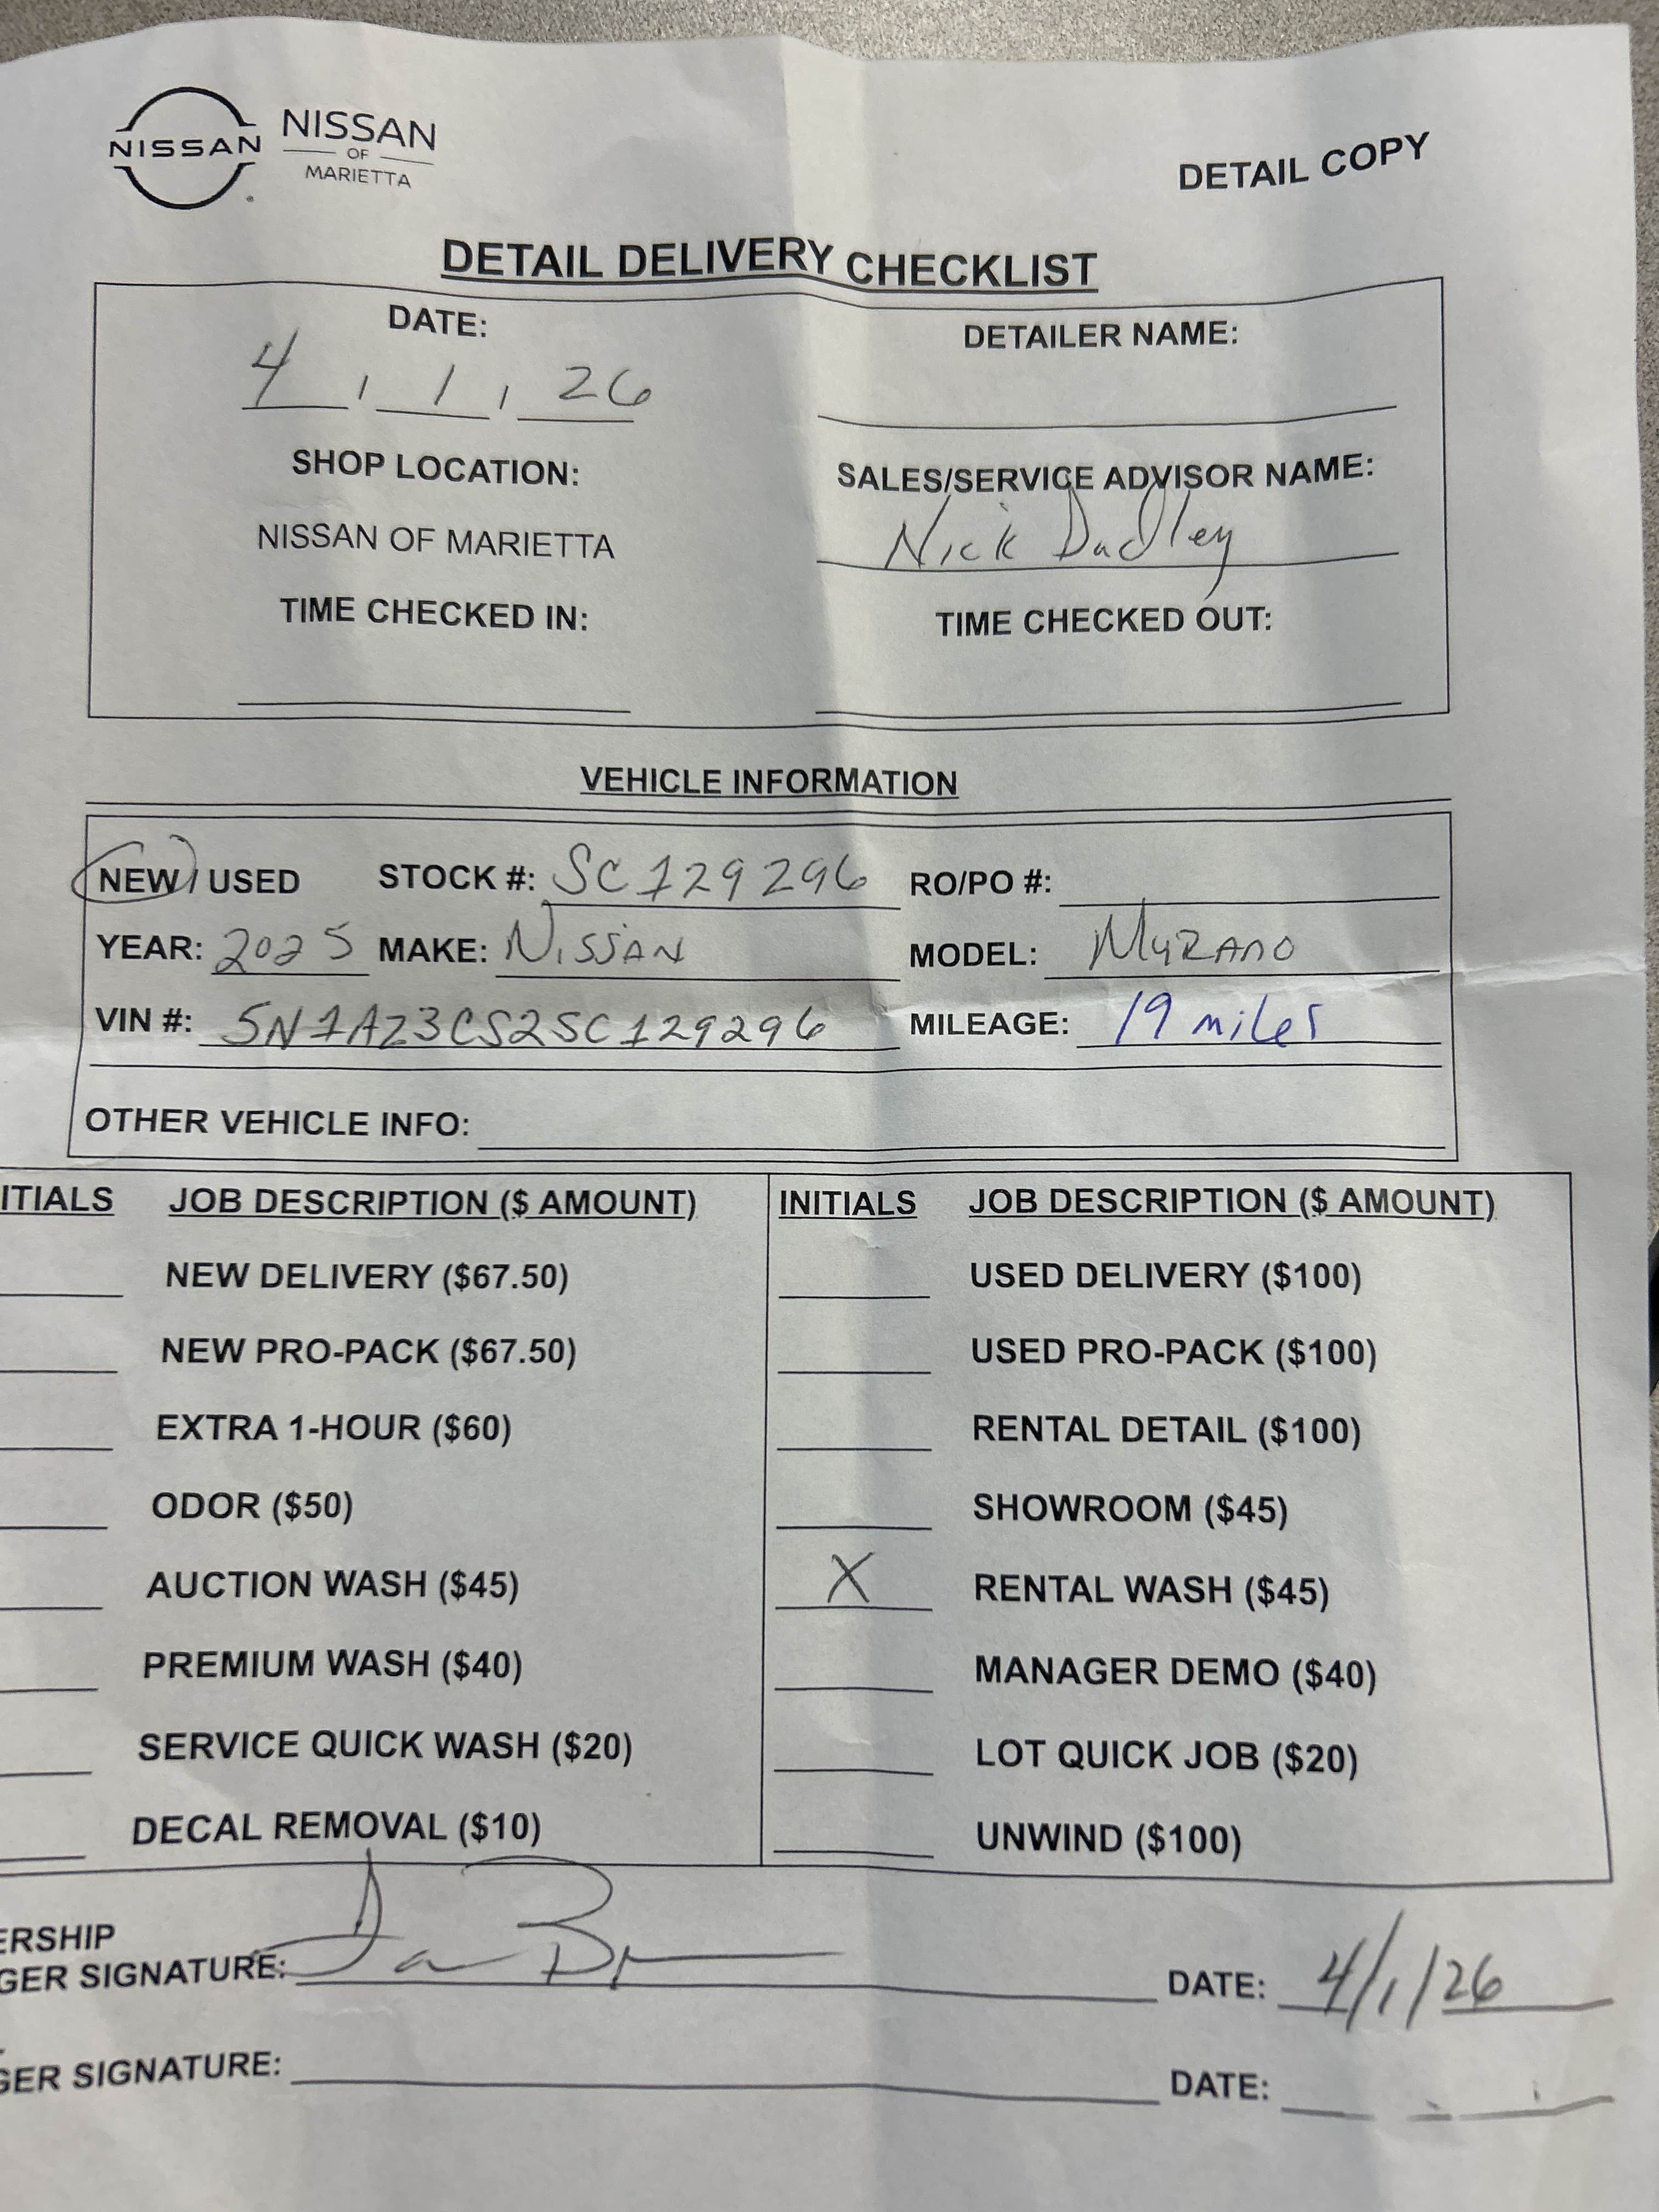 NISSAN
NISSAN
OF
MARIETTA
DETAIL COPY
DETAIL DELIVERY CHECKLIST
DATE: DETAILER NAME:
4 / 1 / 26
SHOP LOCATION: SALES/SERVICE ADVISOR NAME:
NISSAN OF MARIETTA Nick Dudley
TIME CHECKED IN: TIME CHECKED OUT:
VEHICLE INFORMATION
NEW / USED STOCK #: SC129296 RO/PO #:
YEAR: 2025 MAKE: NISSAN MODEL: MURANO
VIN #: 5N1AZ3CS2SC129296 MILEAGE: 19 miles
OTHER VEHICLE INFO:
ITIALS JOB DESCRIPTION ($ AMOUNT) INITIALS JOB DESCRIPTION ($ AMOUNT)
NEW DELIVERY ($67.50) USED DELIVERY ($100)
NEW PRO-PACK ($67.50) USED PRO-PACK ($100)
EXTRA 1-HOUR ($60) RENTAL DETAIL ($100)
ODOR ($50) SHOWROOM ($45)
AUCTION WASH ($45) X RENTAL WASH ($45)
PREMIUM WASH ($40) MANAGER DEMO ($40)
SERVICE QUICK WASH ($20) LOT QUICK JOB ($20)
DECAL REMOVAL ($10) UNWIND ($100)
ERSHIP
GER SIGNATURE: DATE: 4/1/26
GER SIGNATURE: DATE: